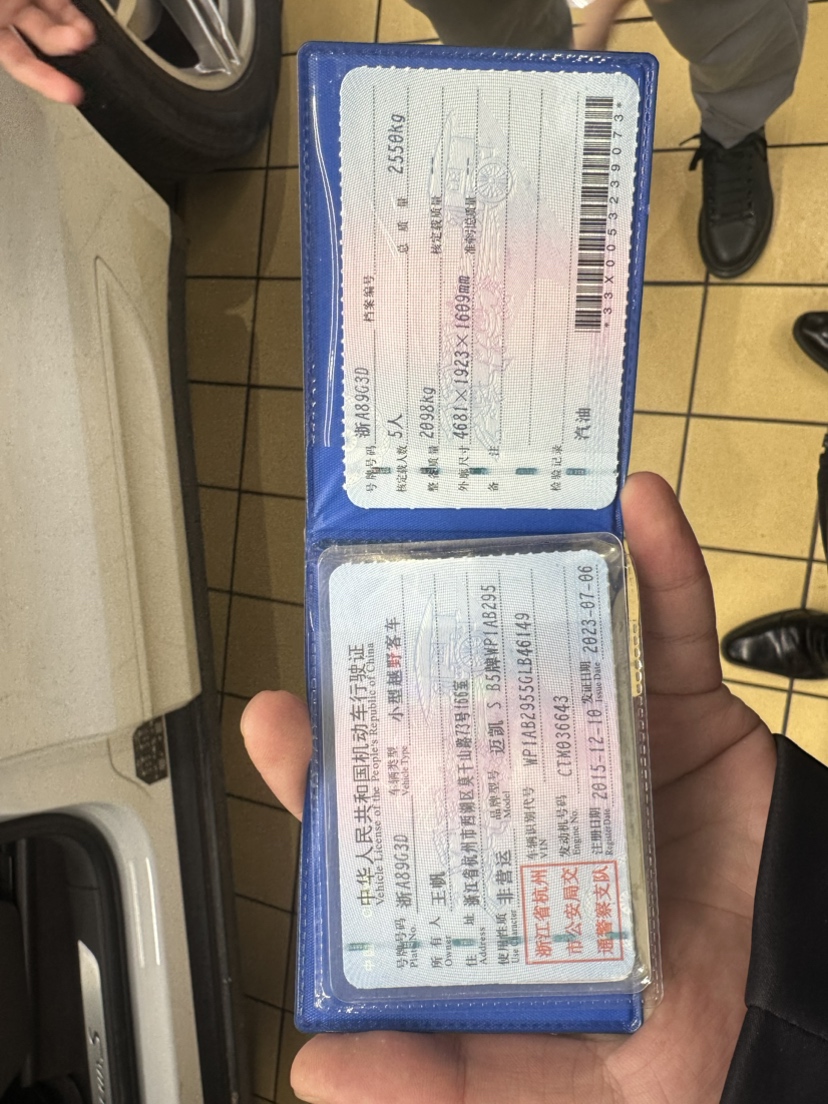 中华人民共和国机动车行驶证
Vehicle License of the People's Republic of China
号牌号码 浙A89G3D 车辆类型 小型越野客车
Plate No. Vehicle Type
所有人 王帆
Owner
住址 浙江省杭州市西湖区莫干山路73号166室
Address
使用性质 非营运 品牌型号 迈凯 S B5牌WP1AB295
Use Character Model
浙江省杭州
市公安局交
通警察支队
车辆识别代号 WP1AB2955GLB46149
VIN
发动机号码 CTM036643
Engine No.
注册日期 2015-12-10 发证日期 2023-07-06
Register Date Issue Date
号牌号码 浙A89G3D 档案编号
核定载人数 5人 总质量 2550kg
整备质量 2098kg 核定载质量 --
外廓尺寸 4681×1923×1609mm 准牵引总质量 --
备注
检验记录
汽油
*33X0053239073*